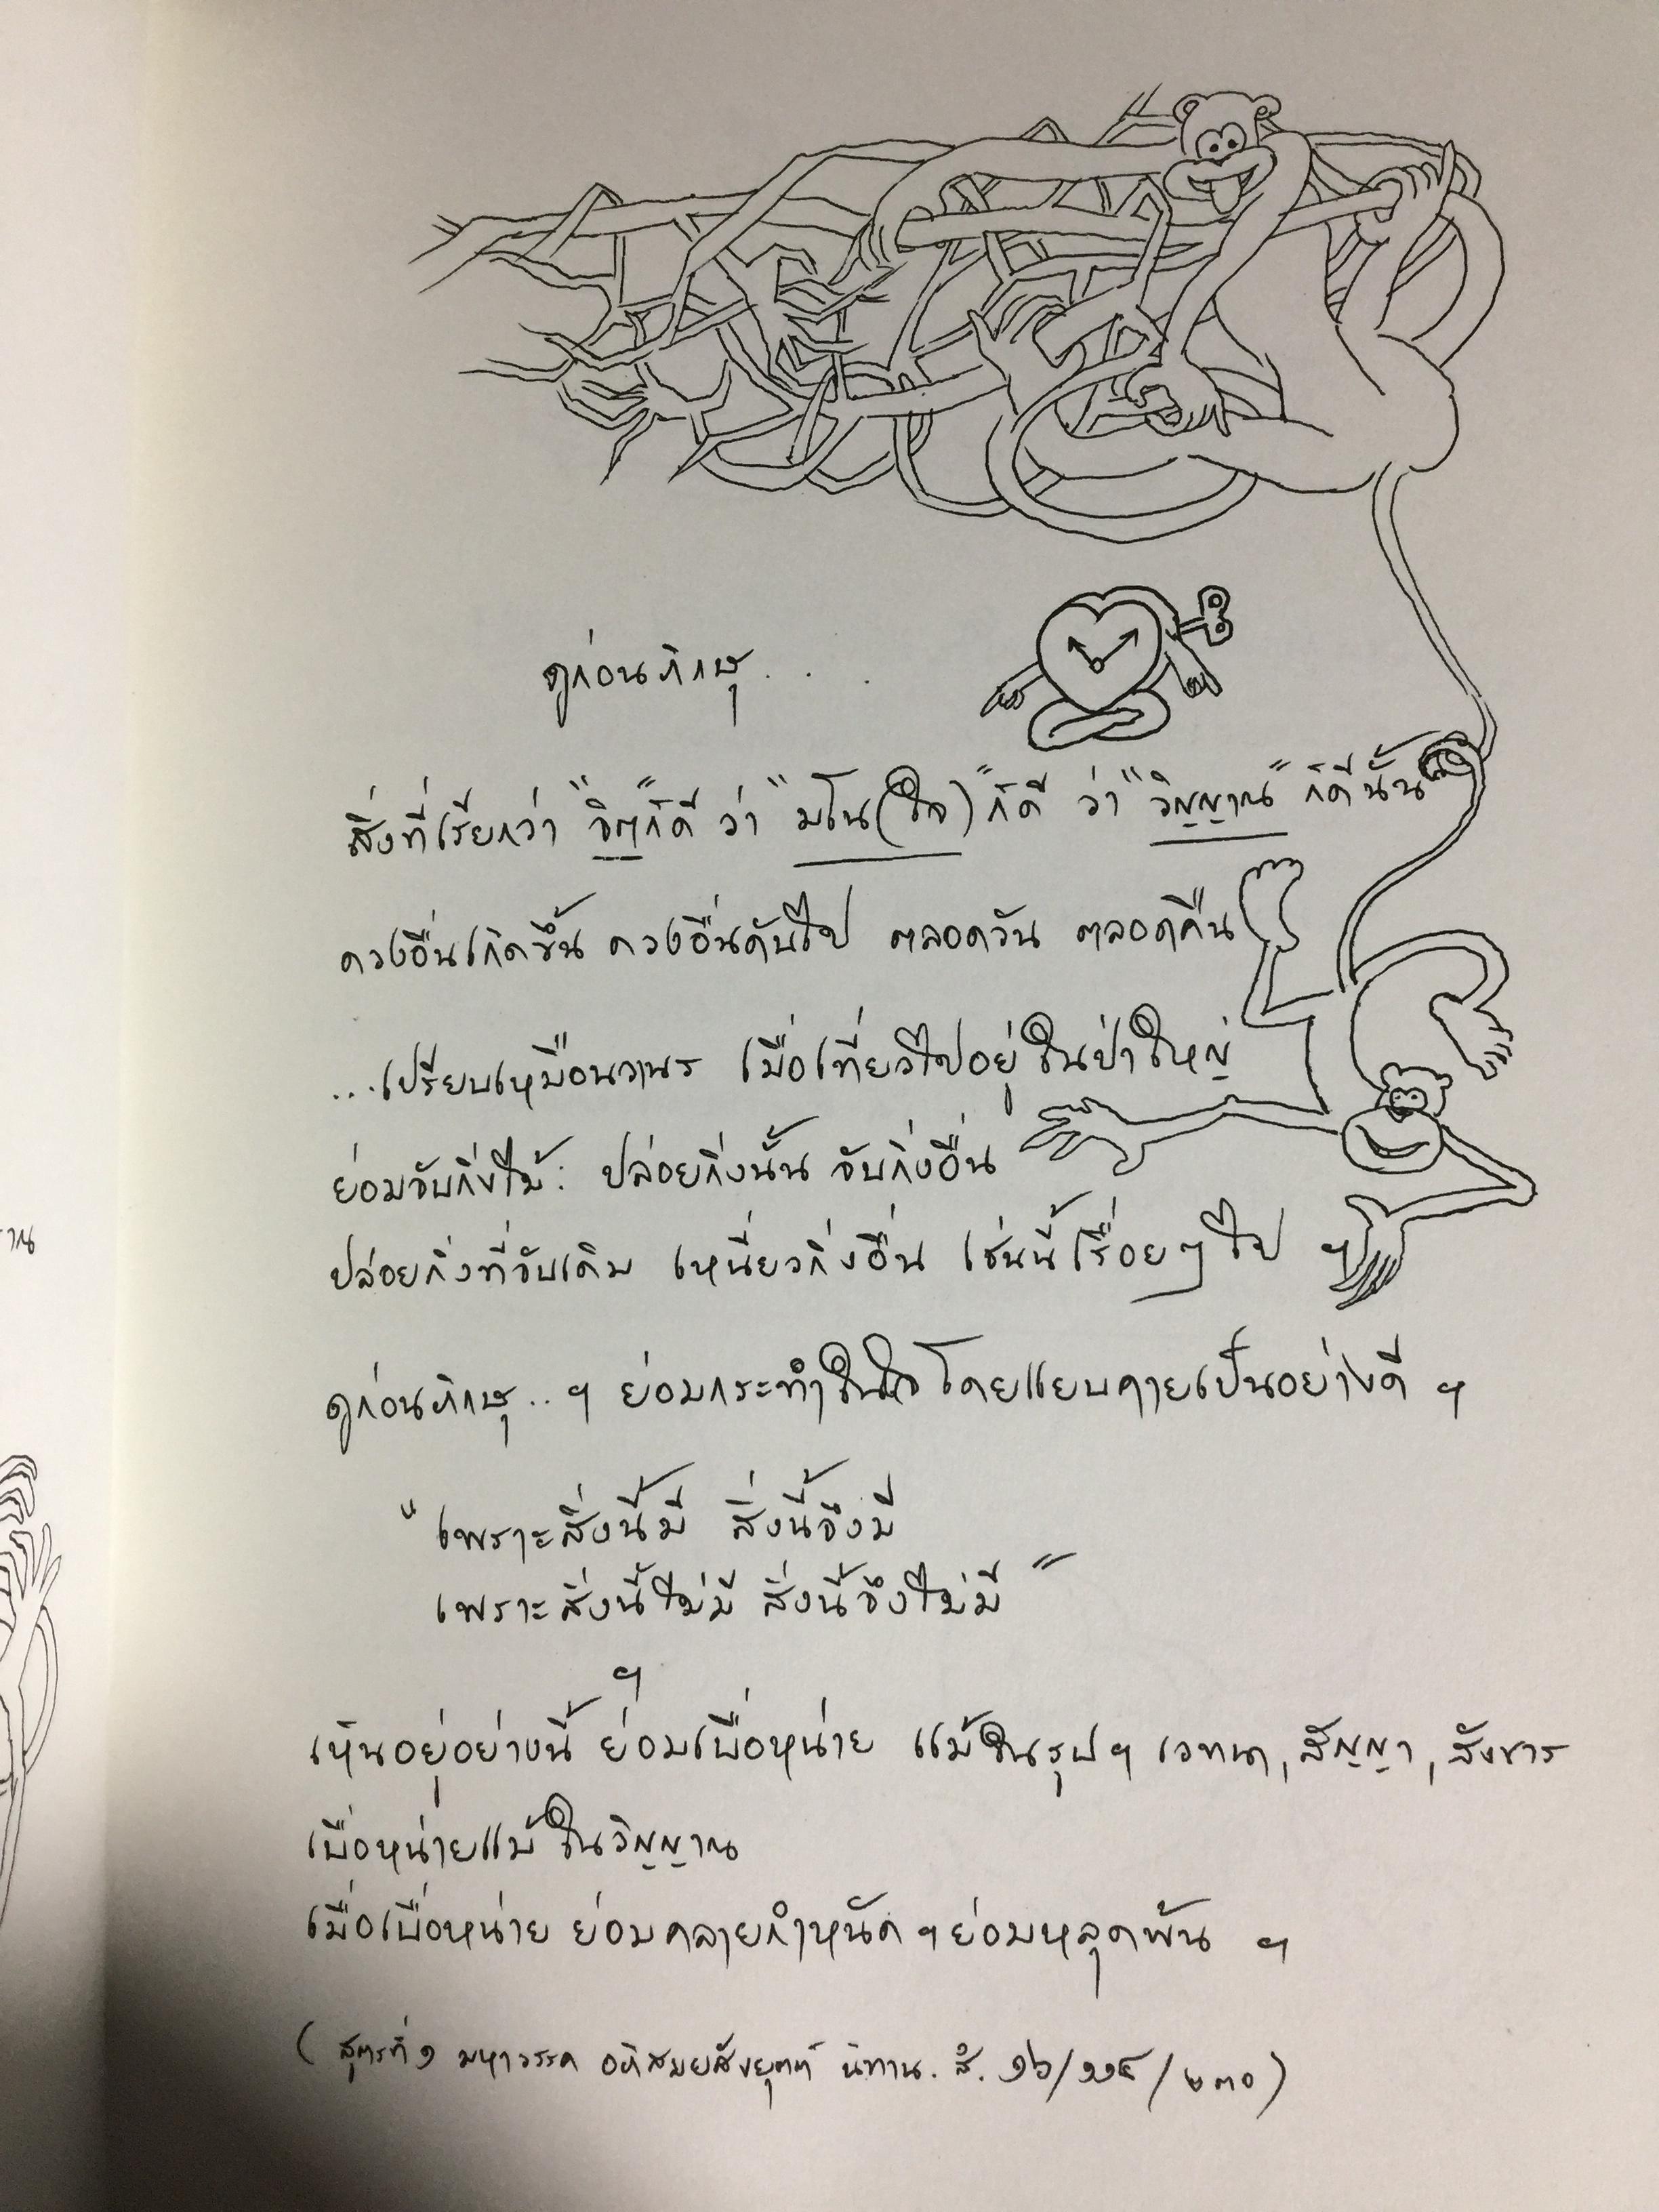 ดูก่อนภิกษุ. . .
สิ่งที่เรียกว่า "จิต"ก็ดี ว่า "มโน(ใจ)"ก็ดี ว่า "วิญญาณ" ก็ดีนั้น
ดวงอื่นเกิดขึ้น ดวงอื่นดับไป ตลอดวัน ตลอดคืน
...เปรียบเหมือนวานร เมื่อเที่ยวไปอยู่ในป่าใหญ่
ย่อมจับกิ่งไม้: ปล่อยกิ่งนั้น จับกิ่งอื่น
ปล่อยกิ่งที่จับเดิม เหนี่ยวกิ่งอื่น เช่นนี้เรื่อยๆ ไป ฯ
ดูก่อนภิกษุ..ฯ ย่อมกระทำในใจโดยแยบคายเป็นอย่างดี ฯ
"เพราะสิ่งนี้มี สิ่งนี้จึงมี
เพราะสิ่งนี้ไม่มี สิ่งนี้จึงไม่มี"
ฯ
เห็นอยู่อย่างนี้ ย่อมเบื่อหน่าย แม้ในรูป ฯ เวทนา, สัญญา, สังขาร
เบื่อหน่ายแม้ในวิญญาณ
เมื่อเบื่อหน่าย ย่อมคลายกำหนัด ฯ ย่อมหลุดพ้น ฯ
(สูตรที่ ๑ มหาวรรค อภิสมยสังยุตต์ นิทาน. สํ. ๑๖/๑๑๔/๒๓๐)